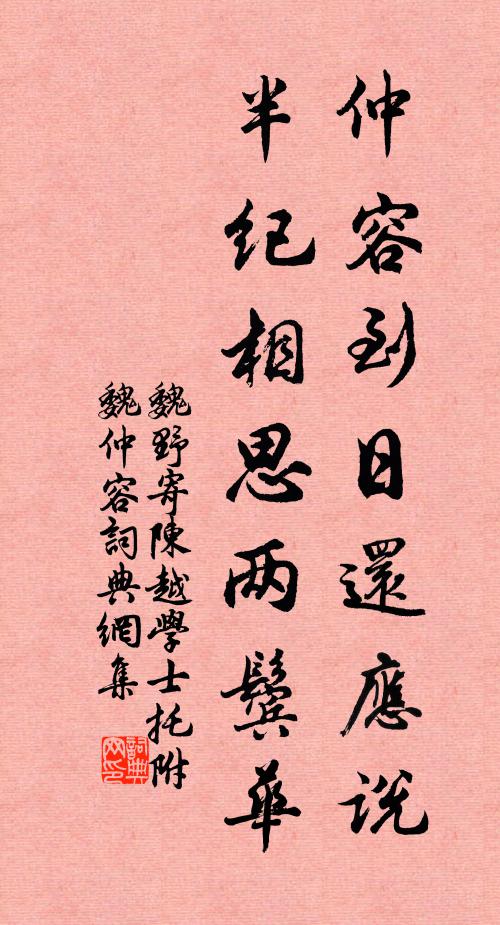 仲容到日還應説
半纪相思两鬓華
魏野寄陳越學士托附
魏仲容詞典網集
詞典网印